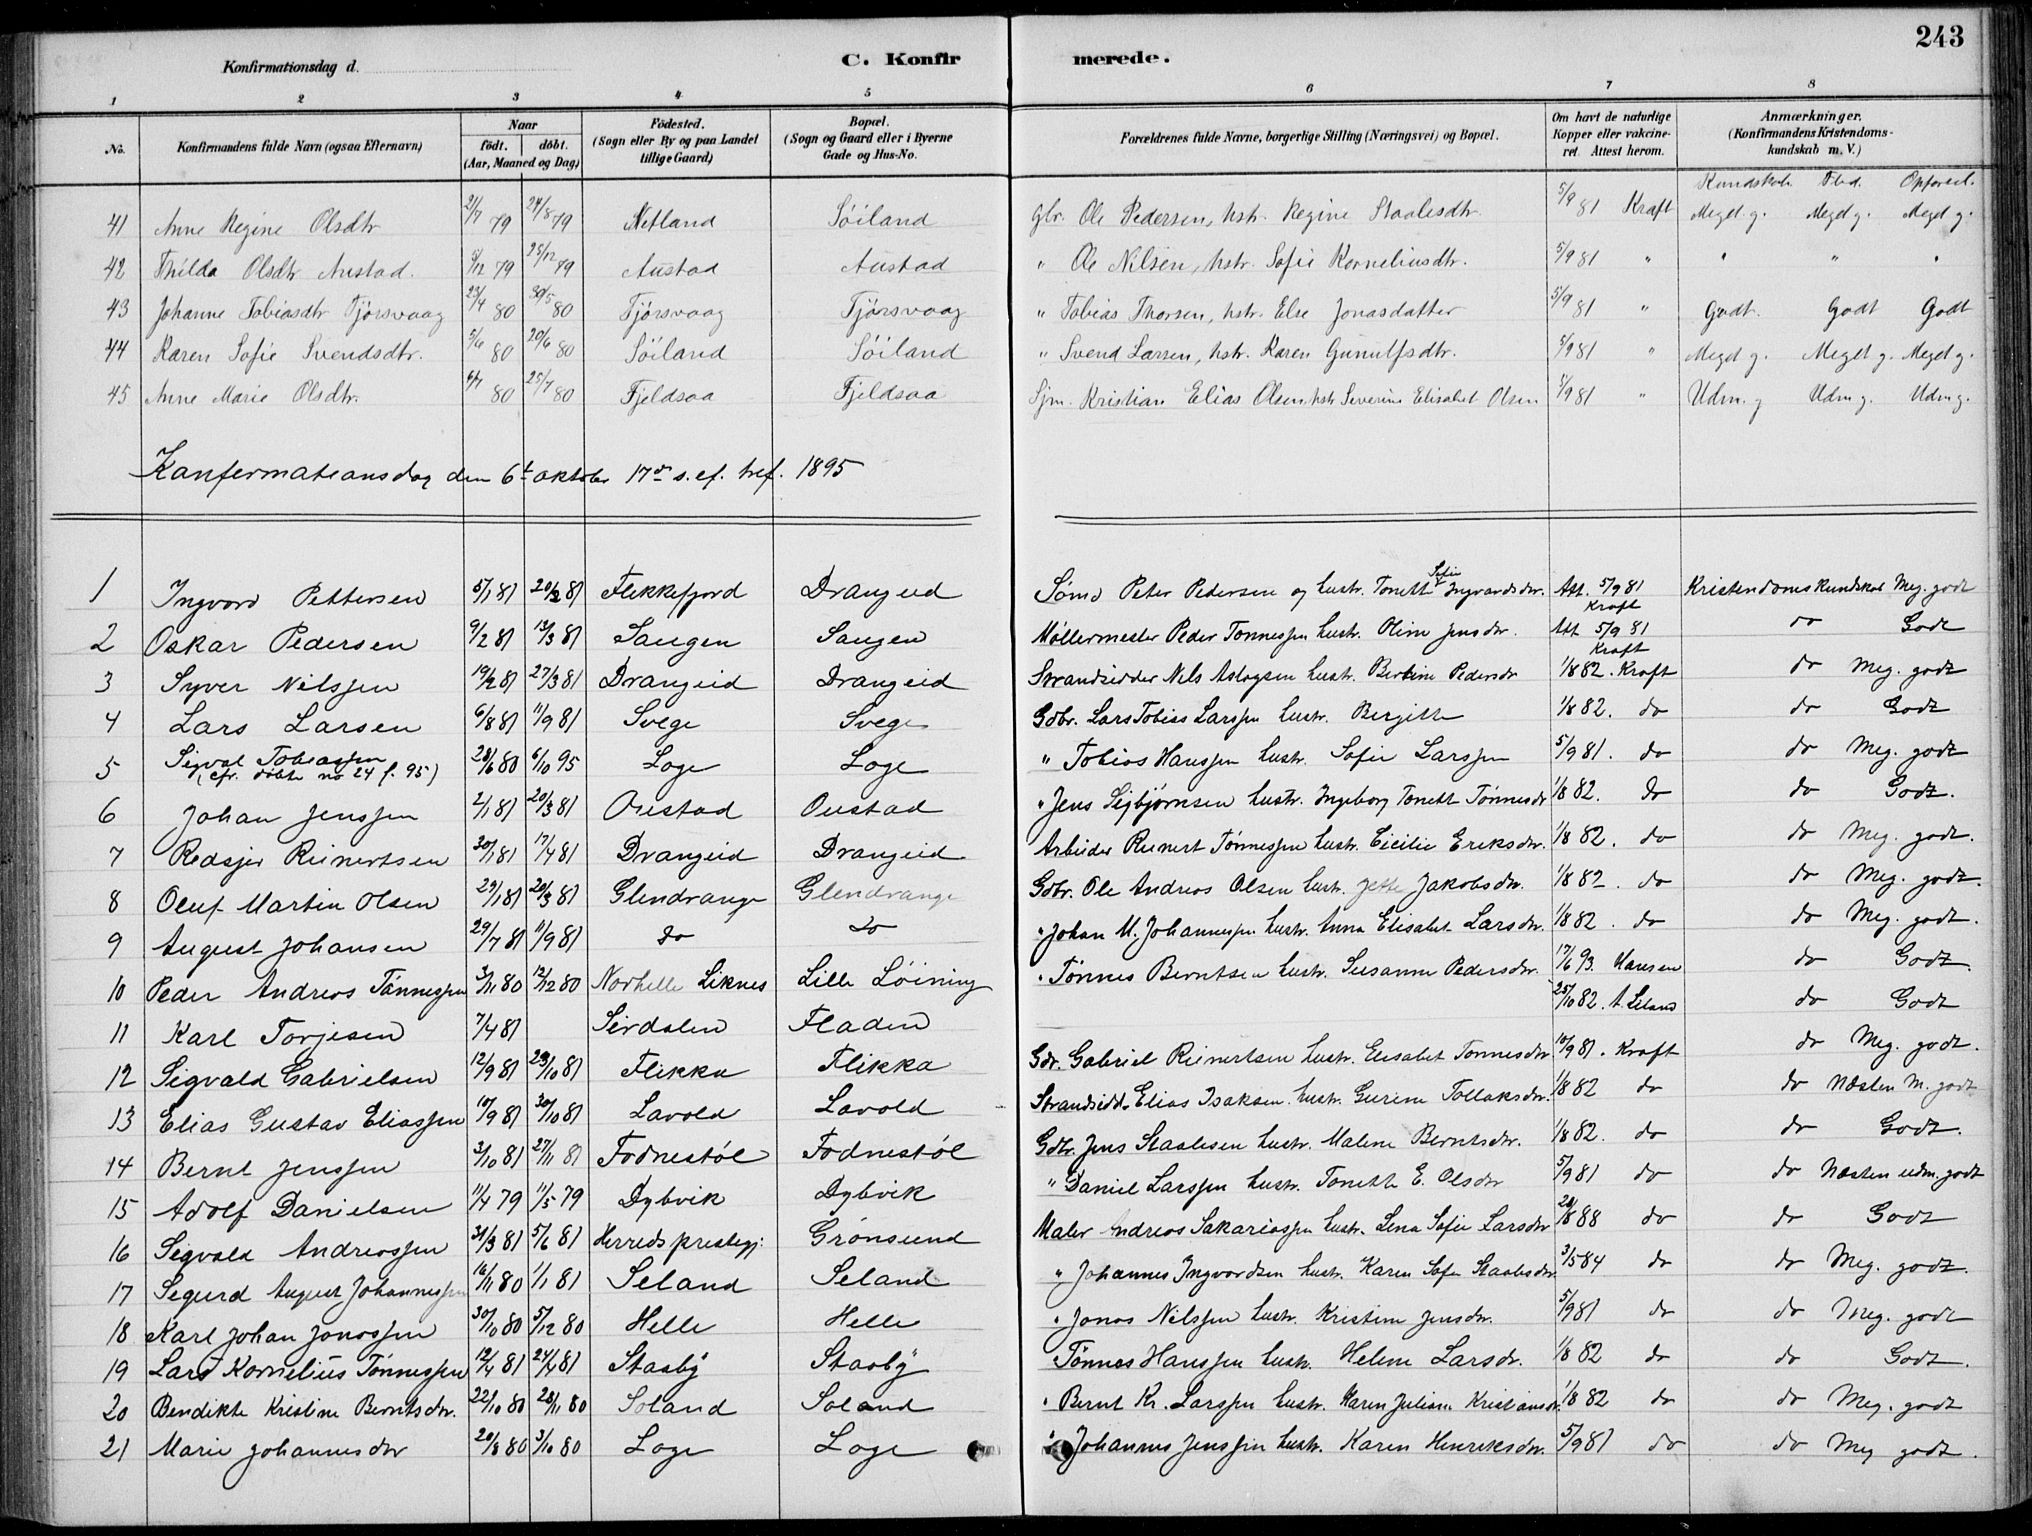 243
Konfirmationsdag d. C. Konfirmerede.
1 2 3 4 5 6 7 8
No. Konfirmandens fulde Navn (ogsaa Efternavn) Naar födt. döbt. (Aar, Maaned og Dag) Födested. (Sogn eller By og paa Landet tillige Gaard) Bopæl. (Sogn og Gaard eller i Byerne Gade og Hus-No. Forældrenes fulde Navne, borgerlige Stilling (Næringsvei) og Bopæl. Om havt de naturlige Kopper eller vakcineret. Attest herom. Anmærkninger. (Konfirmandens Kristendomskundskab m. V.)
Kundskab Flid. Opførsel.
41 Anne Regine Olsdtr 21/7 79 24/8 79 Netland Söiland Gbr. Ole Pedersen, hstr. Regine Staalesdtr. 5/9 81 Kraft Meget g. Meget g. Meget g.
42 Thilda Olsdtr Austad. 5/12 79 25/12 79 Austad Austad " Ole Nilsen, hstr. Sofie Korneliusdtr. 5/9 81 " " " "
43 Johanne Tobiasdtr Tjörsvaag 23/4 80 30/5 80 Tjörsvaag Tjörsvaag " Tobias Thorsen, hstr. Else Jonasdatter 5/9 81 " Godt. Godt Godt
44 Karen Sofie Svendsdtr. 5/6 80 20/6 80 Söiland Söiland " Svend Larsen, hstr. Karen Gunulfsdtr. 5/9 81 " Meget g. Meget g. Meget g.
45 Anne Marie Olsdtr. 6/7 80 25/7 80 Fjeldsaa Fjeldsaa Sjm. Kristian Elias Olsen, hstr Severine Elisabet Olsen 5/9 81 " Udm. g Udm g. Udm g.
Konfermationsdag den 6t oktober 17de s. ef. tref. 1895
1 Ingvard Pettersen 5/1 81 20/2 81 Flekkefjord Drangeid Sømd Peter Pedersen og hustr. Tonette Sofie Ingvardsdtr. Att. 5/9 81 Kraft Kristendomskundskab Meg. godt
2 Oskar Pedersen 9/2 81 13/3 81 Saugen Saugen Møllermester Peder Tønnessen hustr. Oline Jensdtr. Att 5/9 81 Kraft do Godt
3 Syver Nilssen 19/2 81 27/3 81 Drangeid Drangeid Strandsidder Nels Aslagsen hustr. Bertine Pedersdtr 1/8 82. Kraft do Meg. godt
4 Lars Larsen 6/8 81 11/9 81 Svege Svege Gdbr. Lars Tobias Larssen hustr. Bergitte 1/8 82. do do Godt
5 Sigval Tobiassen (cfr. døbte no 24 f. 95) 28/6 80 6/10 95 Loge Loge " Tobias Hanssen hustr. Sofie Larssen 5/9 81. do do Meg. godt
6 Johan Jenssen 2/1 81 20/3 81 Oustad Oustad " Jens Sigbjørnsen hustr. Ingeborg Tonette Tønnesdtr 1/8 82. do do Godt.
7 Redsjer Reinertsen 30/1 81 17/4 81 Drangeid Drangeid Arbeider Reinert Tønnessen hustr. Cicilie Eriksdtr. 1/8 82. do do Meg. godt.
8 Oluf Martin Olsen 29/1 81 20/3 81 Glendrange Glendrange Gdbr. Ole Andreas Olsen hustr. Jette Jakobsdtr. 1/8 82. do do Meg. godt.
9 August Johansen 29/7 81 11/9 81 do do " Johan M. Johannessen hustr. Anna Elisabet Larsdtr. 1/8 82. do do Meg. godt.
10 Peder Andreas Tönnessen 3/11 80 12/12 80 Norhelle Liknes Lille Löining " Tønnes Berntsen hustr. Susanne Pedersdtr. 17/6 93. Hansen do Godt.
11 Karl Torjesen 7/4 81 Sirdalen Fladen 25/10 82. A. Leland do Godt
12 Sigvald Gabrielsen 12/9 81 23/10 81 Flikka Flikka Gdr. Gabriel Reinertsen hustr. Elisabet Tonnesdtr 10/9 81. Kraft do Meg. godt.
13 Elias Gustav Eliassen 10/9 81 30/10 81 Lavold Lavold Strandsidd. Elias Isaksen hustr. Gurine Tollaksdtr. 1/8 82 do do Næsten M. godt
14 Bernt Jenssen 3/10 81 27/11 81 Fodnestöl Fodnestöl Gdbr. Jens Staalesen hustr. Malene Berntsdtr. 1/8 82. do do Godt.
15 Adolf Danielsen 11/4 79 11/5 79 Dybvik Dybvik " Daniel Larssen hustr. Tonette E. Olsdtr 5/9 81 do do Næsten udm. godt
16 Sigvald Andreassen 31/3 81 5/6 81 Herreds prestegj: Grönsund Maler Andreas Sakariassen hustr. Lena Sofie Larsdtr 28/8 88 do do Godt
17 Segurd August Johannessen 16/11 80 1/1 81 Seland Seland " Johannes Ingvardsen hustr. Karen Sofie Staalsdtr 3/5 84 do do Meg. godt.
18 Karl Johan Jonassen 30/10 80 5/12 80 Helle Helle " Jonas Nilssen hustr. Kristine Jensdtr. 5/9 81 do do Meg. godt
19 Lars Kornelius Tönnessen 12/4 81 24/4 81 Stasby Stasby " Tönnes Hanssen hustr. Helene Larsdr. 1/8 82 do do Godt.
20 Bendikte Kristine Berntsdtr. 22/10 80 28/11 80 Soland Soland " Bernt Kr. Larssen hustr. Karen Juliane Kristiansdtr. 1/8 82 do do Meg. godt
21 Marie Johannesdtr 20/8 80 3/10 80 Loge Loge " Johannes Jenssen hustr. Karen Henriksdtr. 5/9 81 do do Meg godt.